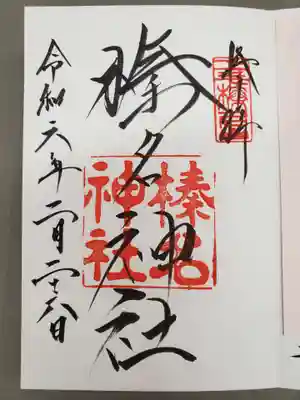 榛名神社
榛名
神社
令和六年二月二十八日